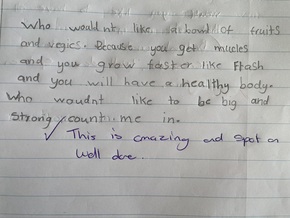 Who wouldnt like a bowl of fruits
and vegies. Because you get mucles
and you grow faster like Flash
and you will have a healthy body.
Who woudnt like to be big and
strong, count me in.
✓ This is amazing and spot on
well done.